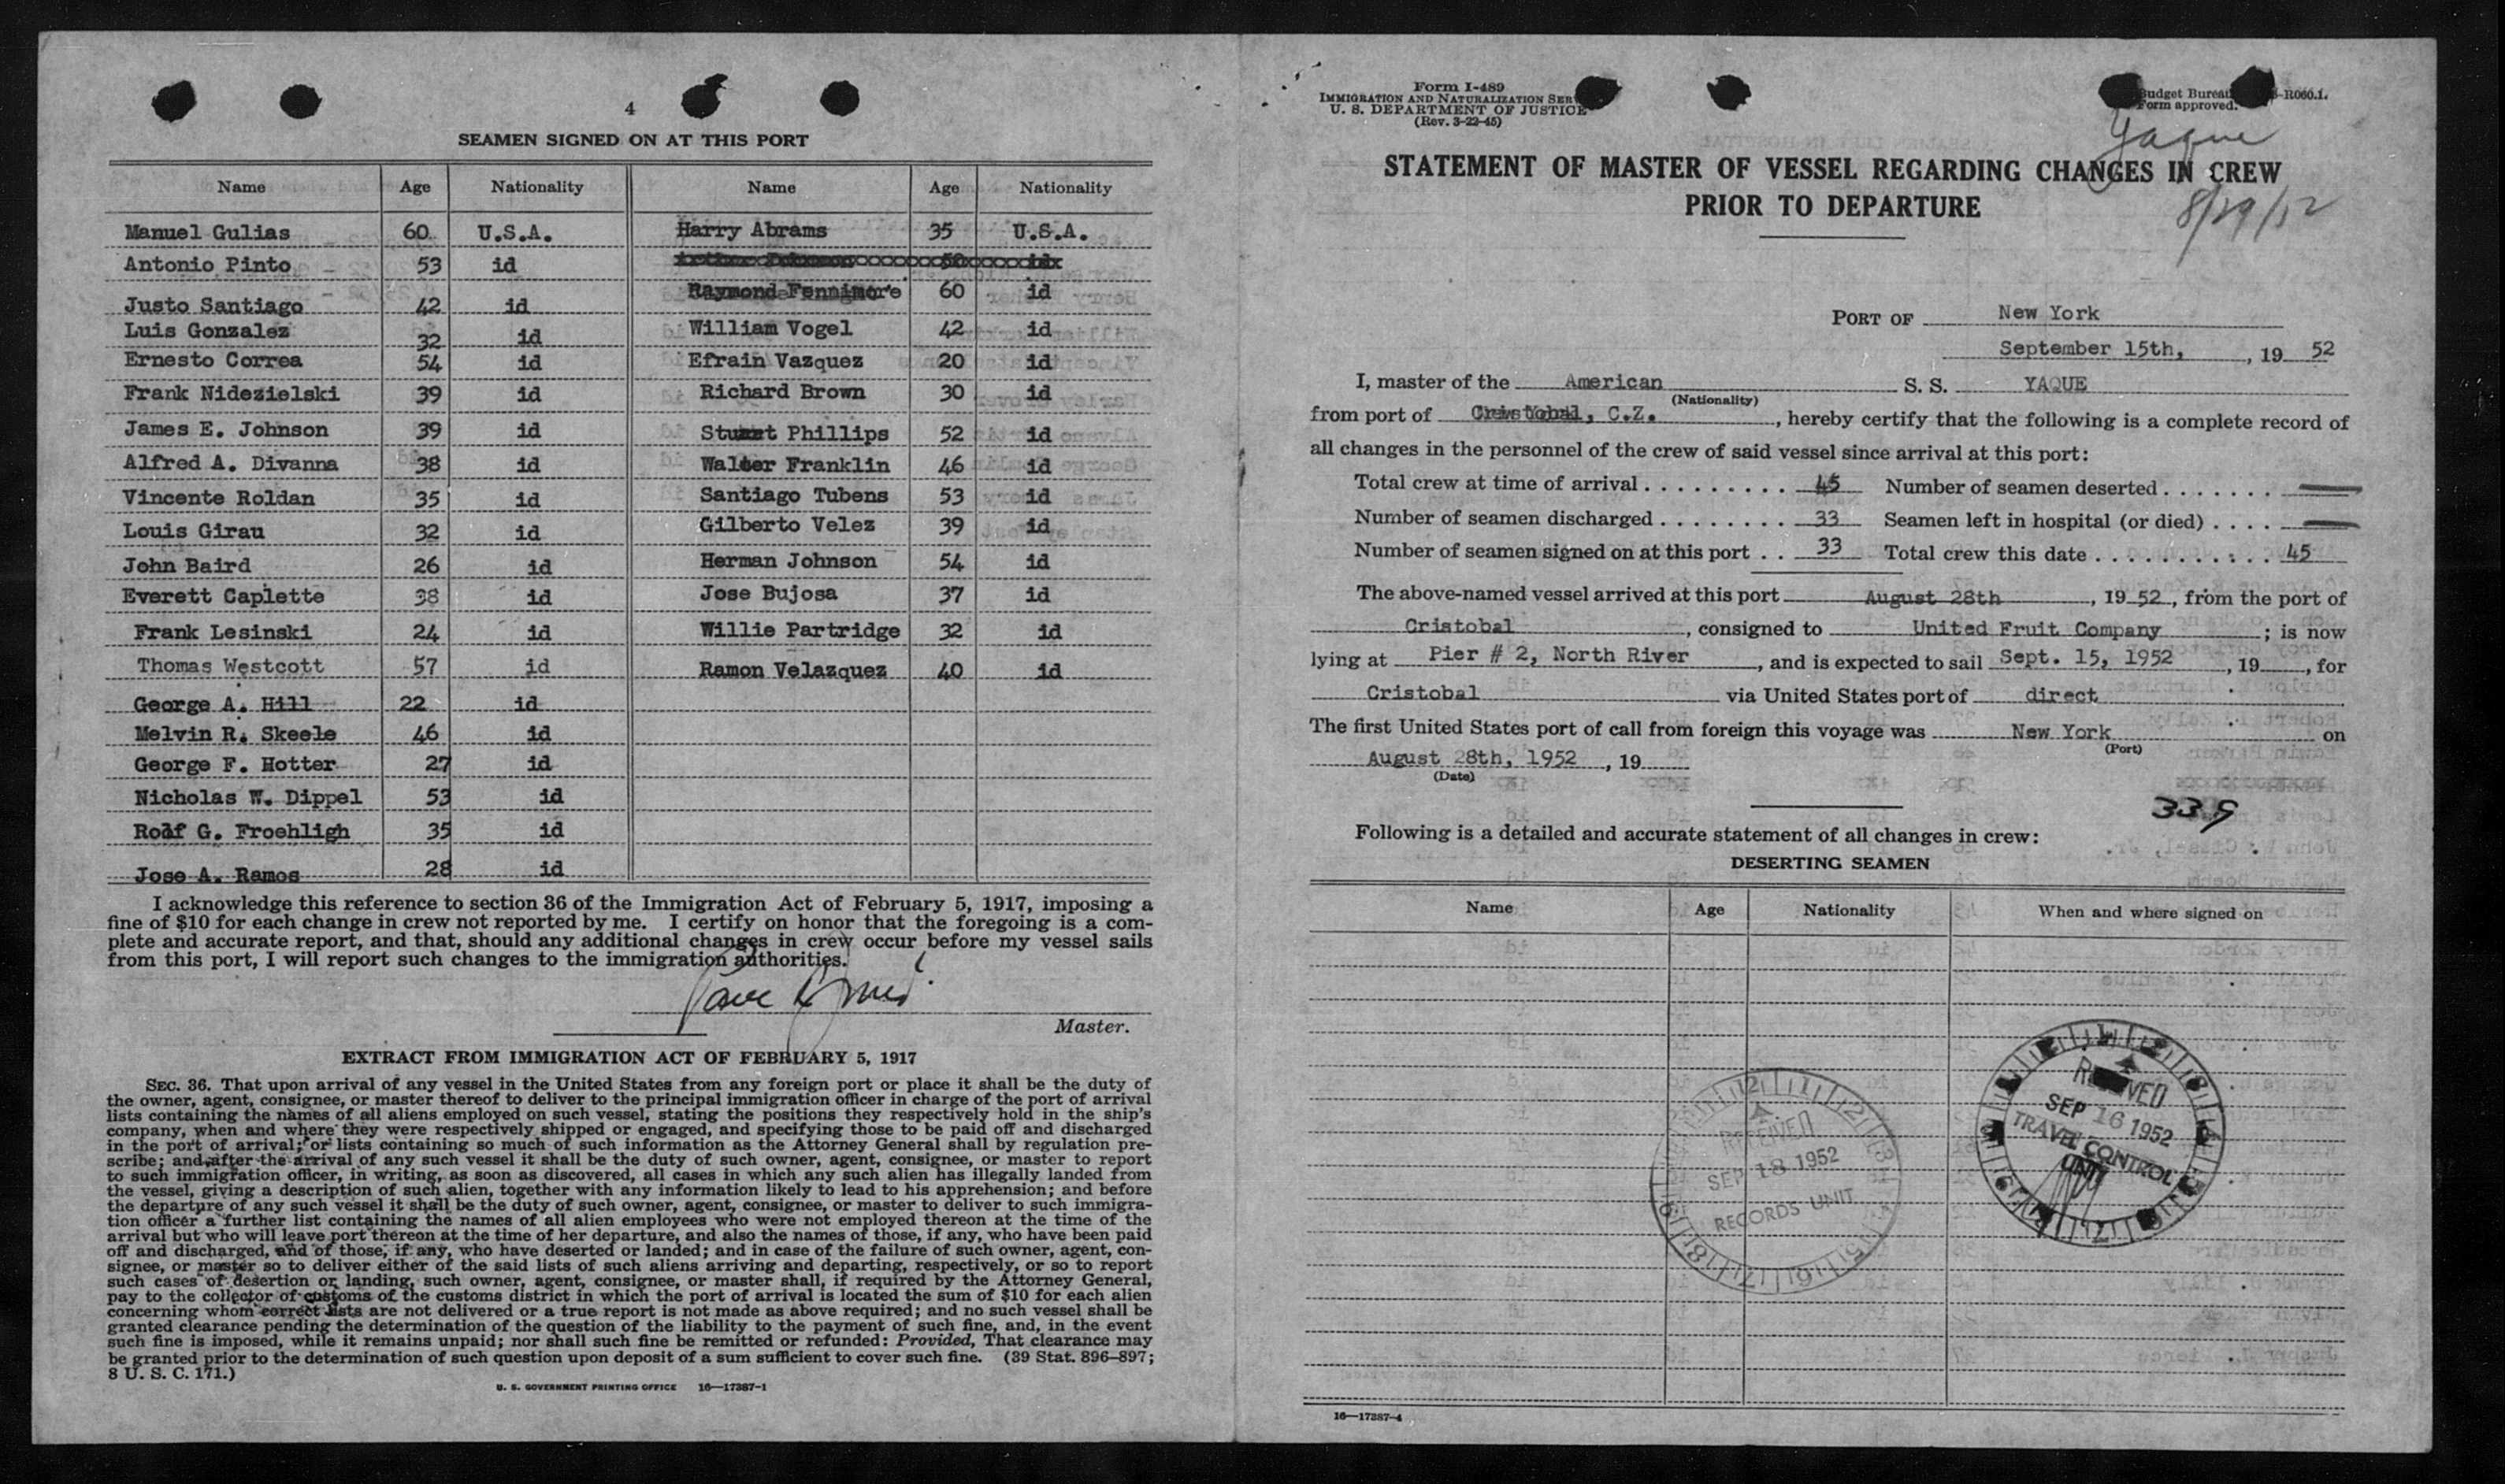 4
SEAMEN SIGNED ON AT THIS PORT
Name Age Nationality Name Age Nationality
Manuel Gulias 60 U.S.A. Harry Abrams 35 U.S.A.
Antonio Pinto 53 id
Justo Santiago 42 id Raymond Fennimore 60 id
Luis Gonzalez 32 id William Vogel 42 id
Ernesto Correa 54 id Efrain Vazquez 20 id
Frank Nidezielski 39 id Richard Brown 30 id
James E. Johnson 39 id Stuart Phillips 52 id
Alfred A. Divanna 38 id Walter Franklin 46 id
Vincente Roldan 35 id Santiago Tubens 53 id
Louis Girau 32 id Gilberto Velez 39 id
John Baird 26 id Herman Johnson 54 id
Everett Caplette 38 id Jose Bujosa 37 id
Frank Lesinski 24 id Willie Partridge 32 id
Thomas Westcott 57 id Ramon Velazquez 40 id
George A. Hill 22 id
Melvin R. Skeele 46 id
George F. Hotter 27 id
Nicholas W. Dippel 53 id
Rolf G. Froehligh 35 id
Jose A. Ramos 28 id
I acknowledge this reference to section 36 of the Immigration Act of February 5, 1917, imposing a
fine of $10 for each change in crew not reported by me. I certify on honor that the foregoing is a com-
plete and accurate report, and that, should any additional changes in crew occur before my vessel sails
from this port, I will report such changes to the immigration authorities.
Master.
EXTRACT FROM IMMIGRATION ACT OF FEBRUARY 5, 1917
SEC. 36. That upon arrival of any vessel in the United States from any foreign port or place it shall be the duty of
the owner, agent, consignee, or master thereof to deliver to the principal immigration officer in charge of the port of arrival
lists containing the names of all aliens employed on such vessel, stating the positions they respectively hold in the ship's
company, when and where they were respectively shipped or engaged, and specifying those to be paid off and discharged
in the port of arrival; or lists containing so much of such information as the Attorney General shall by regulation pre-
scribe; and after the arrival of any such vessel it shall be the duty of such owner, agent, consignee, or master to report
to such immigration officer, in writing, as soon as discovered, all cases in which any such alien has illegally landed from
the vessel, giving a description of such alien, together with any information likely to lead to his apprehension; and before
the departure of any such vessel it shall be the duty of such owner, agent, consignee, or master to deliver to such immigra-
tion officer a further list containing the names of all alien employees who were not employed thereon at the time of the
arrival but who will leave port thereon at the time of her departure, and also the names of those, if any, who have been paid
off and discharged, and of those, if any, who have deserted or landed; and in case of the failure of such owner, agent, con-
signee, or master so to deliver either of the said lists of such aliens arriving and departing, respectively, or so to report
such cases of desertion or landing, such owner, agent, consignee, or master shall, if required by the Attorney General,
pay to the collector of customs of the customs district in which the port of arrival is located the sum of $10 for each alien
concerning whom correct lists are not delivered or a true report is not made as above required; and no such vessel shall be
granted clearance pending the determination of the question of the liability to the payment of such fine, and, in the event
such fine is imposed, while it remains unpaid; nor shall such fine be remitted or refunded: Provided, That clearance may
be granted prior to the determination of such question upon deposit of a sum sufficient to cover such fine. (39 Stat. 896–897;
8 U. S. C. 171.)
U. S. GOVERNMENT PRINTING OFFICE 16—17387-1
Form I-489
IMMIGRATION AND NATURALIZATION
U. S. DEPARTMENT OF JUSTICE
(Rev. 3-22-45)
Budget Bureau R060.1.
Form approved.
Yaque
8/29/52
STATEMENT OF MASTER OF VESSEL REGARDING CHANGES IN CREW
PRIOR TO DEPARTURE
PORT OF New York
September 15th, , 19 52
I, master of the American S. S. YAQUE
(Nationality)
from port of Cristobal, C.Z. , hereby certify that the following is a complete record of
all changes in the personnel of the crew of said vessel since arrival at this port:
Total crew at time of arrival . . . . . . . . . . 45 Number of seamen deserted . . . . . . .
Number of seamen discharged . . . . . . . . 33 Seamen left in hospital (or died) . . . .
Number of seamen signed on at this port . . 33 Total crew this date . . . . . . . . . . . 45
The above-named vessel arrived at this port August 28th , 19 52, from the port of
Cristobal , consigned to United Fruit Company ; is now
lying at Pier # 2, North River , and is expected to sail Sept. 15, 1952 , 19 , for
Cristobal via United States port of direct
The first United States port of call from foreign this voyage was New York on
(Port)
August 28th, 1952 , 19
(Date)
339
Following is a detailed and accurate statement of all changes in crew:
DESERTING SEAMEN
Name Age Nationality When and where signed on
RECEIVED
SEP 16 1952
TRAVEL CONTROL
UNIT
RECEIVED
SEP 18 1952
RECORDS UNIT
16—17387-4